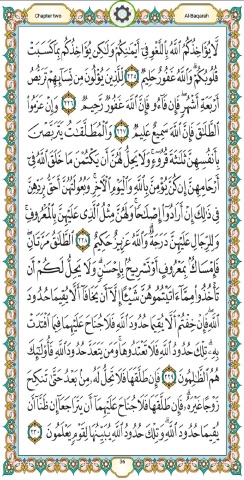 Chapter two
Al-Baqarah
لَّا يُؤَاخِذُكُمُ ٱللَّهُ بِٱللَّغْوِ فِىٓ أَيْمَٰنِكُمْ وَلَٰكِن يُؤَاخِذُكُم بِمَا كَسَبَتْ
قُلُوبُكُمْ ۗ وَٱللَّهُ غَفُورٌ حَلِيمٌ ٢٢٥ لِّلَّذِينَ يُؤْلُونَ مِن نِّسَآئِهِمْ تَرَبُّصُ
أَرْبَعَةِ أَشْهُرٍ ۖ فَإِن فَآءُو فَإِنَّ ٱللَّهَ غَفُورٌ رَّحِيمٌ ٢٢٦ وَإِنْ عَزَمُوا۟
ٱلطَّلَٰقَ فَإِنَّ ٱللَّهَ سَمِيعٌ عَلِيمٌ ٢٢٧ وَٱلْمُطَلَّقَٰتُ يَتَرَبَّصْنَ
بِأَنفُسِهِنَّ ثَلَٰثَةَ قُرُوٓءٍ ۚ وَلَا يَحِلُّ لَهُنَّ أَن يَكْتُمْنَ مَا خَلَقَ ٱللَّهُ فِىٓ
أَرْحَامِهِنَّ إِن كُنَّ يُؤْمِنَّ بِٱللَّهِ وَٱلْيَوْمِ ٱلْءَاخِرِ ۚ وَبُعُولَتُهُنَّ أَحَقُّ بِرَدِّهِنَّ
فِى ذَٰلِكَ إِنْ أَرَادُوٓا۟ إِصْلَٰحًا ۚ وَلَهُنَّ مِثْلُ ٱلَّذِى عَلَيْهِنَّ بِٱلْمَعْرُوفِ ۚ
وَلِلرِّجَالِ عَلَيْهِنَّ دَرَجَةٌ ۗ وَٱللَّهُ عَزِيزٌ حَكِيمٌ ٢٢٨ ٱلطَّلَٰقُ مَرَّتَانِ ۖ
فَإِمْسَاكٌۢ بِمَعْرُوفٍ أَوْ تَسْرِيحٌۢ بِإِحْسَٰنٍ ۗ وَلَا يَحِلُّ لَكُمْ أَن
تَأْخُذُوا۟ مِمَّآ ءَاتَيْتُمُوهُنَّ شَيْـًٔا إِلَّآ أَن يَخَافَآ أَلَّا يُقِيمَا حُدُودَ
ٱللَّهِ ۖ فَإِنْ خِفْتُمْ أَلَّا يُقِيمَا حُدُودَ ٱللَّهِ فَلَا جُنَاحَ عَلَيْهِمَا فِيمَا ٱفْتَدَتْ
بِهِۦ ۗ تِلْكَ حُدُودُ ٱللَّهِ فَلَا تَعْتَدُوهَا ۚ وَمَن يَتَعَدَّ حُدُودَ ٱللَّهِ فَأُو۟لَٰٓئِكَ
هُمُ ٱلظَّٰلِمُونَ ٢٢٩ فَإِن طَلَّقَهَا فَلَا تَحِلُّ لَهُۥ مِنۢ بَعْدُ حَتَّىٰ تَنكِحَ
زَوْجًا غَيْرَهُۥ ۗ فَإِن طَلَّقَهَا فَلَا جُنَاحَ عَلَيْهِمَآ أَن يَتَرَاجَعَآ إِن ظَنَّآ أَن
يُقِيمَا حُدُودَ ٱللَّهِ ۗ وَتِلْكَ حُدُودُ ٱللَّهِ يُبَيِّنُهَا لِقَوْمٍ يَعْلَمُونَ ٢٣٠
36